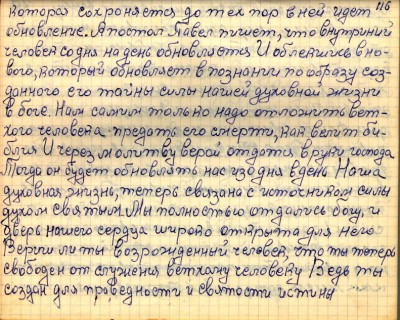 116
которая сохроняется до тех пор в ней идет
обновление. Апостол Павел пишет, что внутриний
человек со дня надень обновляется И облекшись в но-
вого, который обновляет в познании по образу соз-
данного его тайны силы нашей духовной жизни
в боге. Нам самим только надо отложить вет-
хого человека предать его смерти, как велит би-
блия И через молитву верой отдатся в руки господа
Тогда он будет обновлять нас изодня вдень Наша
духовная жизнь, теперь связана с источником силы
духом святым. Мы полностью отдались богу, и
дверь нашего сердца широко открыта для него
Вериш ли ты возрожденный человек, что ты теперь
свободен от служения ветхому человеку Ведь ты
создан для праведности и святости истины